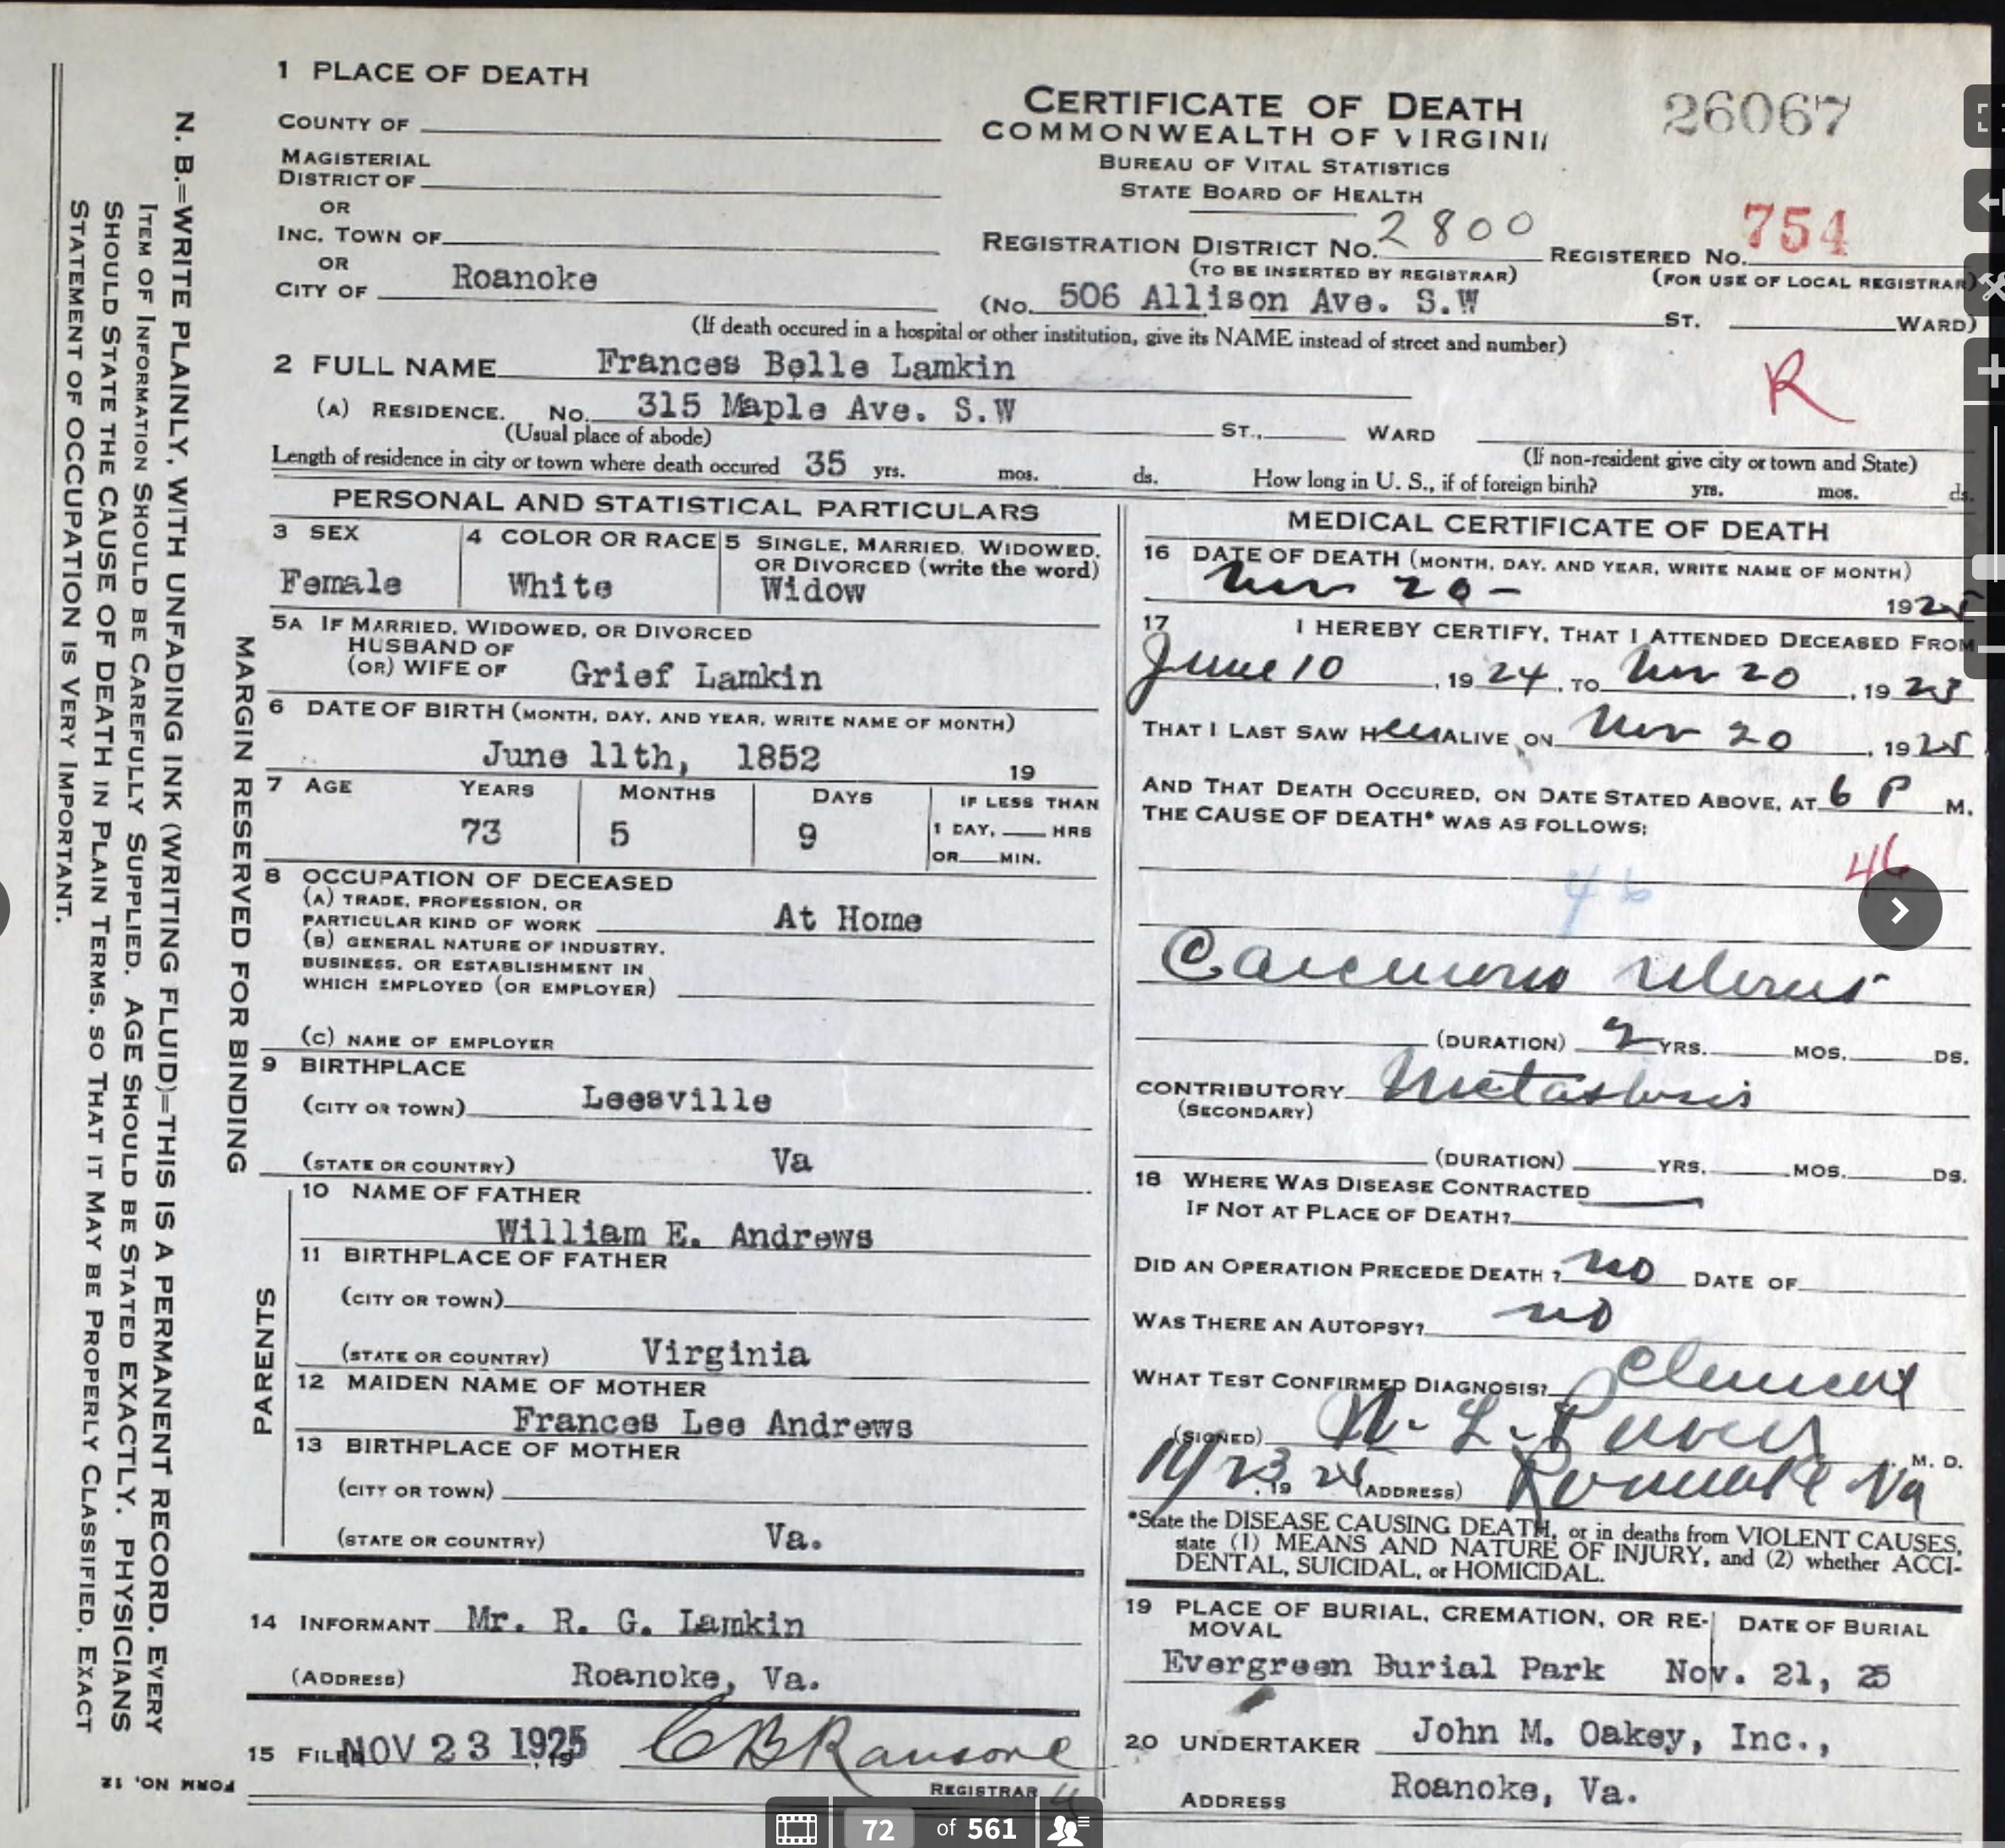 1 PLACE OF DEATH
COUNTY OF
MAGISTERIAL
DISTRICT OF
OR
INC. TOWN OF
OR
CITY OF Roanoke
CERTIFICATE OF DEATH
COMMONWEALTH OF VIRGINI
BUREAU OF VITAL STATISTICS
STATE BOARD OF HEALTH
26067
REGISTRATION DISTRICT No. 2800 REGISTERED No. 754
(TO BE INSERTED BY REGISTRAR) (FOR USE OF LOCAL REGISTRAR)
(No. 506 Allison Ave. S.W ST. WARD)
(If death occured in a hospital or other institution, give its NAME instead of street and number)
2 FULL NAME Frances Belle Lamkin
R
(A) RESIDENCE. No. 315 Maple Ave. S.W ST., WARD
(Usual place of abode) (If non-resident give city or town and State)
Length of residence in city or town where death occured 35 yrs. mos. ds. How long in U. S., if of foreign birth? yrs. mos. ds.
PERSONAL AND STATISTICAL PARTICULARS
3 SEX
Female
4 COLOR OR RACE
White
5 SINGLE, MARRIED, WIDOWED,
OR DIVORCED (write the word)
Widow
5A IF MARRIED, WIDOWED, OR DIVORCED
HUSBAND OF
(OR) WIFE OF Grief Lamkin
6 DATE OF BIRTH (MONTH, DAY, AND YEAR, WRITE NAME OF MONTH)
June 11th, 1852 19
7 AGE YEARS MONTHS DAYS IF LESS THAN
73 5 9 1 DAY, HRS
OR MIN.
8 OCCUPATION OF DECEASED
(A) TRADE, PROFESSION, OR
PARTICULAR KIND OF WORK At Home
(B) GENERAL NATURE OF INDUSTRY,
BUSINESS, OR ESTABLISHMENT IN
WHICH EMPLOYED (OR EMPLOYER)
(C) NAME OF EMPLOYER
9 BIRTHPLACE
(CITY OR TOWN) Leesville
(STATE OR COUNTRY) Va
PARENTS
10 NAME OF FATHER
William E. Andrews
11 BIRTHPLACE OF FATHER
(CITY OR TOWN)
(STATE OR COUNTRY) Virginia
12 MAIDEN NAME OF MOTHER
Frances Lee Andrews
13 BIRTHPLACE OF MOTHER
(CITY OR TOWN)
(STATE OR COUNTRY) Va.
14 INFORMANT Mr. R. G. Lamkin
(ADDRESS) Roanoke, Va.
15 FILED NOV 23 1925 , 19
C B Ransone
REGISTRAR
MEDICAL CERTIFICATE OF DEATH
16 DATE OF DEATH (MONTH, DAY, AND YEAR, WRITE NAME OF MONTH)
Nov 20 - 1925
17 I HEREBY CERTIFY, THAT I ATTENDED DECEASED FROM
June 10 , 19 24 , TO Nov 20 , 19 25
THAT I LAST SAW H er ALIVE ON Nov 20 , 19 25
AND THAT DEATH OCCURED, ON DATE STATED ABOVE, AT 6 P M.
THE CAUSE OF DEATH* WAS AS FOLLOWS:
46
46
Carcinoma uterus
(DURATION) 2 YRS. MOS. DS.
CONTRIBUTORY Metastasis
(SECONDARY)
(DURATION) YRS. MOS. DS.
18 WHERE WAS DISEASE CONTRACTED
IF NOT AT PLACE OF DEATH?
DID AN OPERATION PRECEDE DEATH? no DATE OF
WAS THERE AN AUTOPSY? no
WHAT TEST CONFIRMED DIAGNOSIS?
(SIGNED) L. M. D.
11/23 , 19 (ADDRESS) Roanoke Va
*State the DISEASE CAUSING DEATH, or in deaths from VIOLENT CAUSES,
state (1) MEANS AND NATURE OF INJURY, and (2) whether ACCI-
DENTAL, SUICIDAL, or HOMICIDAL.
19 PLACE OF BURIAL, CREMATION, OR RE- DATE OF BURIAL
MOVAL
Evergreen Burial Park Nov. 21, 25
20 UNDERTAKER John M. Oakey, Inc.,
ADDRESS Roanoke, Va.
MARGIN RESERVED FOR BINDING
N. B.=WRITE PLAINLY, WITH UNFADING INK (WRITING FLUID)=THIS IS A PERMANENT RECORD. EVERY
ITEM OF INFORMATION SHOULD BE CAREFULLY SUPPLIED. AGE SHOULD BE STATED EXACTLY. PHYSICIANS
SHOULD STATE THE CAUSE OF DEATH IN PLAIN TERMS, SO THAT IT MAY BE PROPERLY CLASSIFIED. EXACT
STATEMENT OF OCCUPATION IS VERY IMPORTANT.
FORM NO. 12
72 of 561